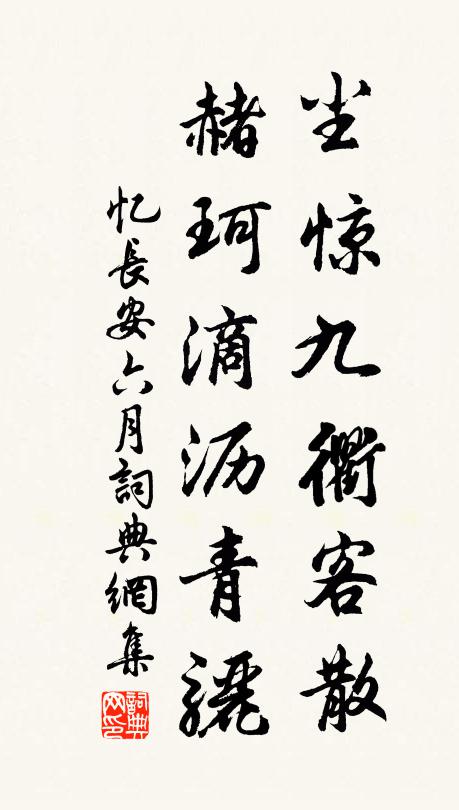 尘惊九衢客散
赭珂滴沥青骊
忆長安六月詞典網集
詞典网印